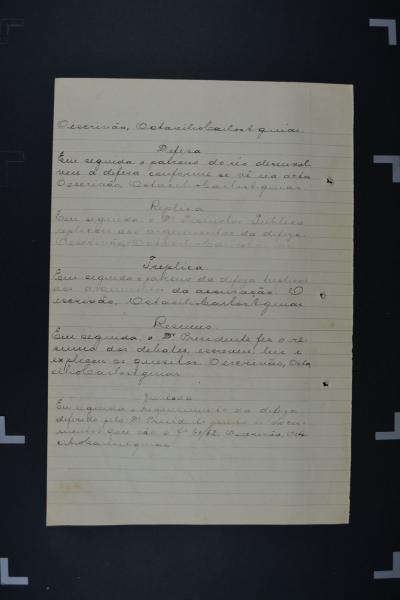 O escrivão, Octacilio Carlos Aguiar
Defesa
Em seguida o patrono do réo desenvol-
veu a defesa conforme se vê na acta
O escrivão, Octacilio Carlos Aguiar
Replica
Em seguida o Dr. Promotor Publico
replicou aos argumentos da defeza
O escrivão, Octacilio Carlos
Treplica
Em seguida o patrono da defeza treplicou
aos argumentos da accusação. O
escrivão, Octacilio Carlos Aguiar
Resumo
Em seguida, o Dr. Presidente fez o re-
sumo dos debates, escreveu, leu e
explicou os quesitos. O escrivão, Octa
cilio Carlos Aguiar
Juntada
Em seguida o requerimento da defeza
deferido pelo Dr. Presidente junto os docu-
mentos que são o fs 61/62. O escrivão, Octa
cilio Carlos Aguiar